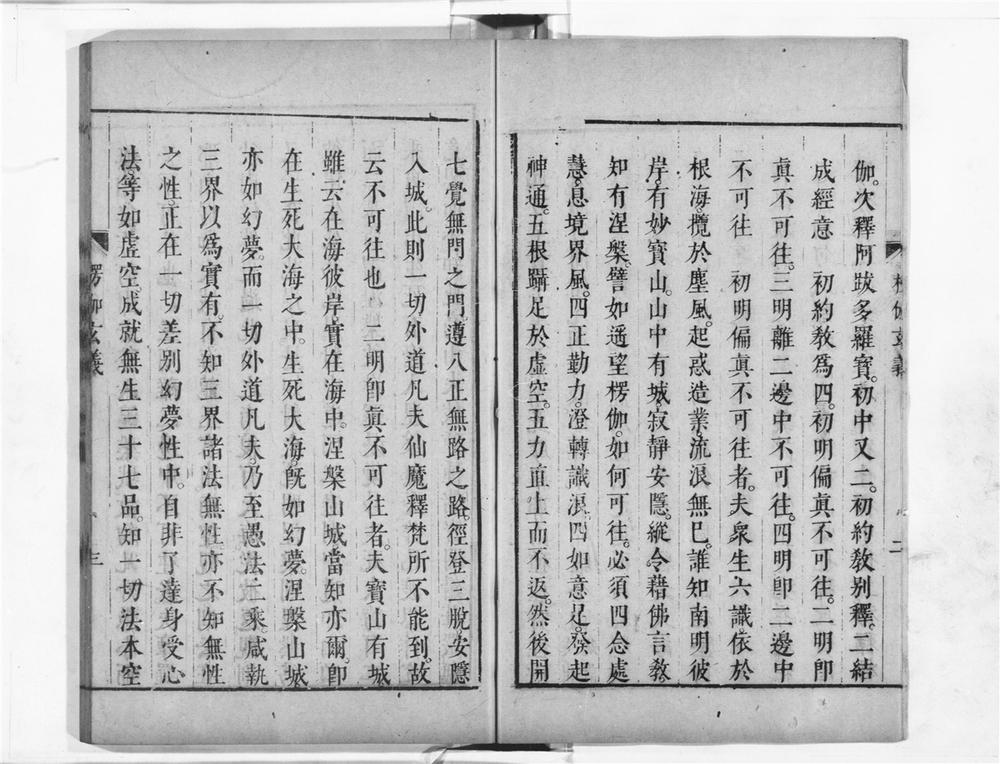 伽。次釋阿跋多羅寶。初中又二。初約教別釋。二結
成經意　初約教爲四。初明偏眞不可往。二明卽
眞不可往。三明離二邊中不可往。四明卽二邊中
不可往　初明偏眞不可往者。夫衆生六識依於
根海攬於塵風。起惑造業流浪無已。誰知南明彼
岸有妙寶山。山中有城寂靜安隱。縱令藉佛言敎。
知有涅槃。譬如遙望楞伽。如何可往。必須四念處
慧。息境界風。四正勤力。澄轉識浪。四如意足。發起
神通。五根躡足於虛空。五力直上而不返。然後開
二
七覺無門之門。遵八正無路之路。徑登三脫。安隱
入城。此則一切外道凡夫仙魔釋梵所不能到。故
云不可往也　二明卽眞不可往者。夫寶山有城
雖云在海彼岸。實在海中。涅槃山城當知亦爾。卽
在生死大海之中。生死大海。旣如幻夢。涅槃山城
亦如幻夢。而一切外道凡夫。乃至愚法二乘。咸執
三界以爲實有。不知三界諸法無性。亦不知無性
之性。正在一切差別幻夢性中。自非了達身受心
法。等如虛空。成就無生三十七品。知一切法本空
楞伽玄義
三